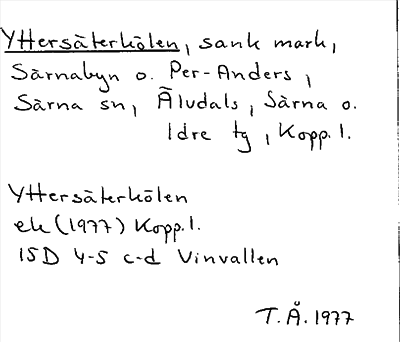 Yttersäterkölen, sank mark,
Särnabyn o. Per-Anders,
Särna sn, Äludals, Särna o.
Idre tg, Kopp. l.
Yttersäterkölen
ek (1977) Kopp. l.
15D 4-5 c-d Vinvallen
T. Å. 1977